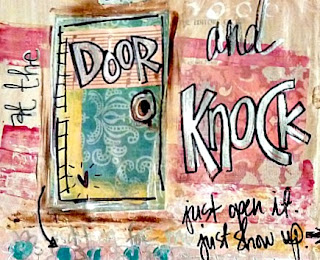 at the
DOOR
and
KNOCK
just open it.
just show up.